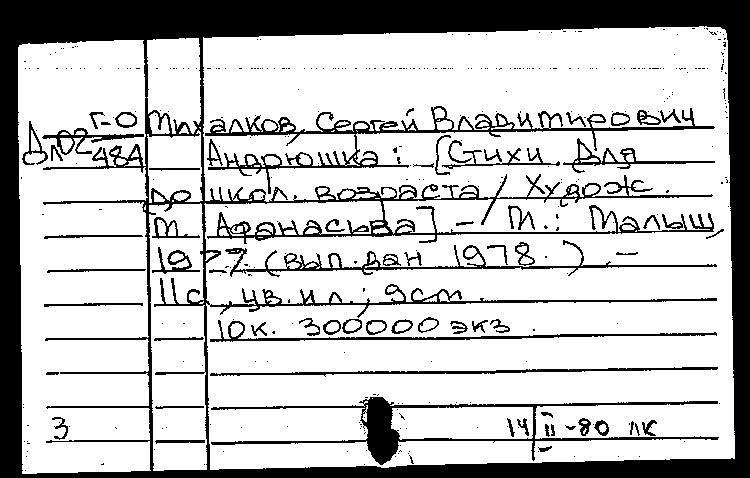 Г-О Михалков, Сергей Владимирович
Дл02 484 Андрюшка: [Стихи. Для
дошкол. возраста / Худож.
М. Афанасьва] - М.: Малыш,
1977 (вып.дан 1978.). -
11с., цв.ил.; 9см.
10к. 300000 экз.
3 14/II-80 лк